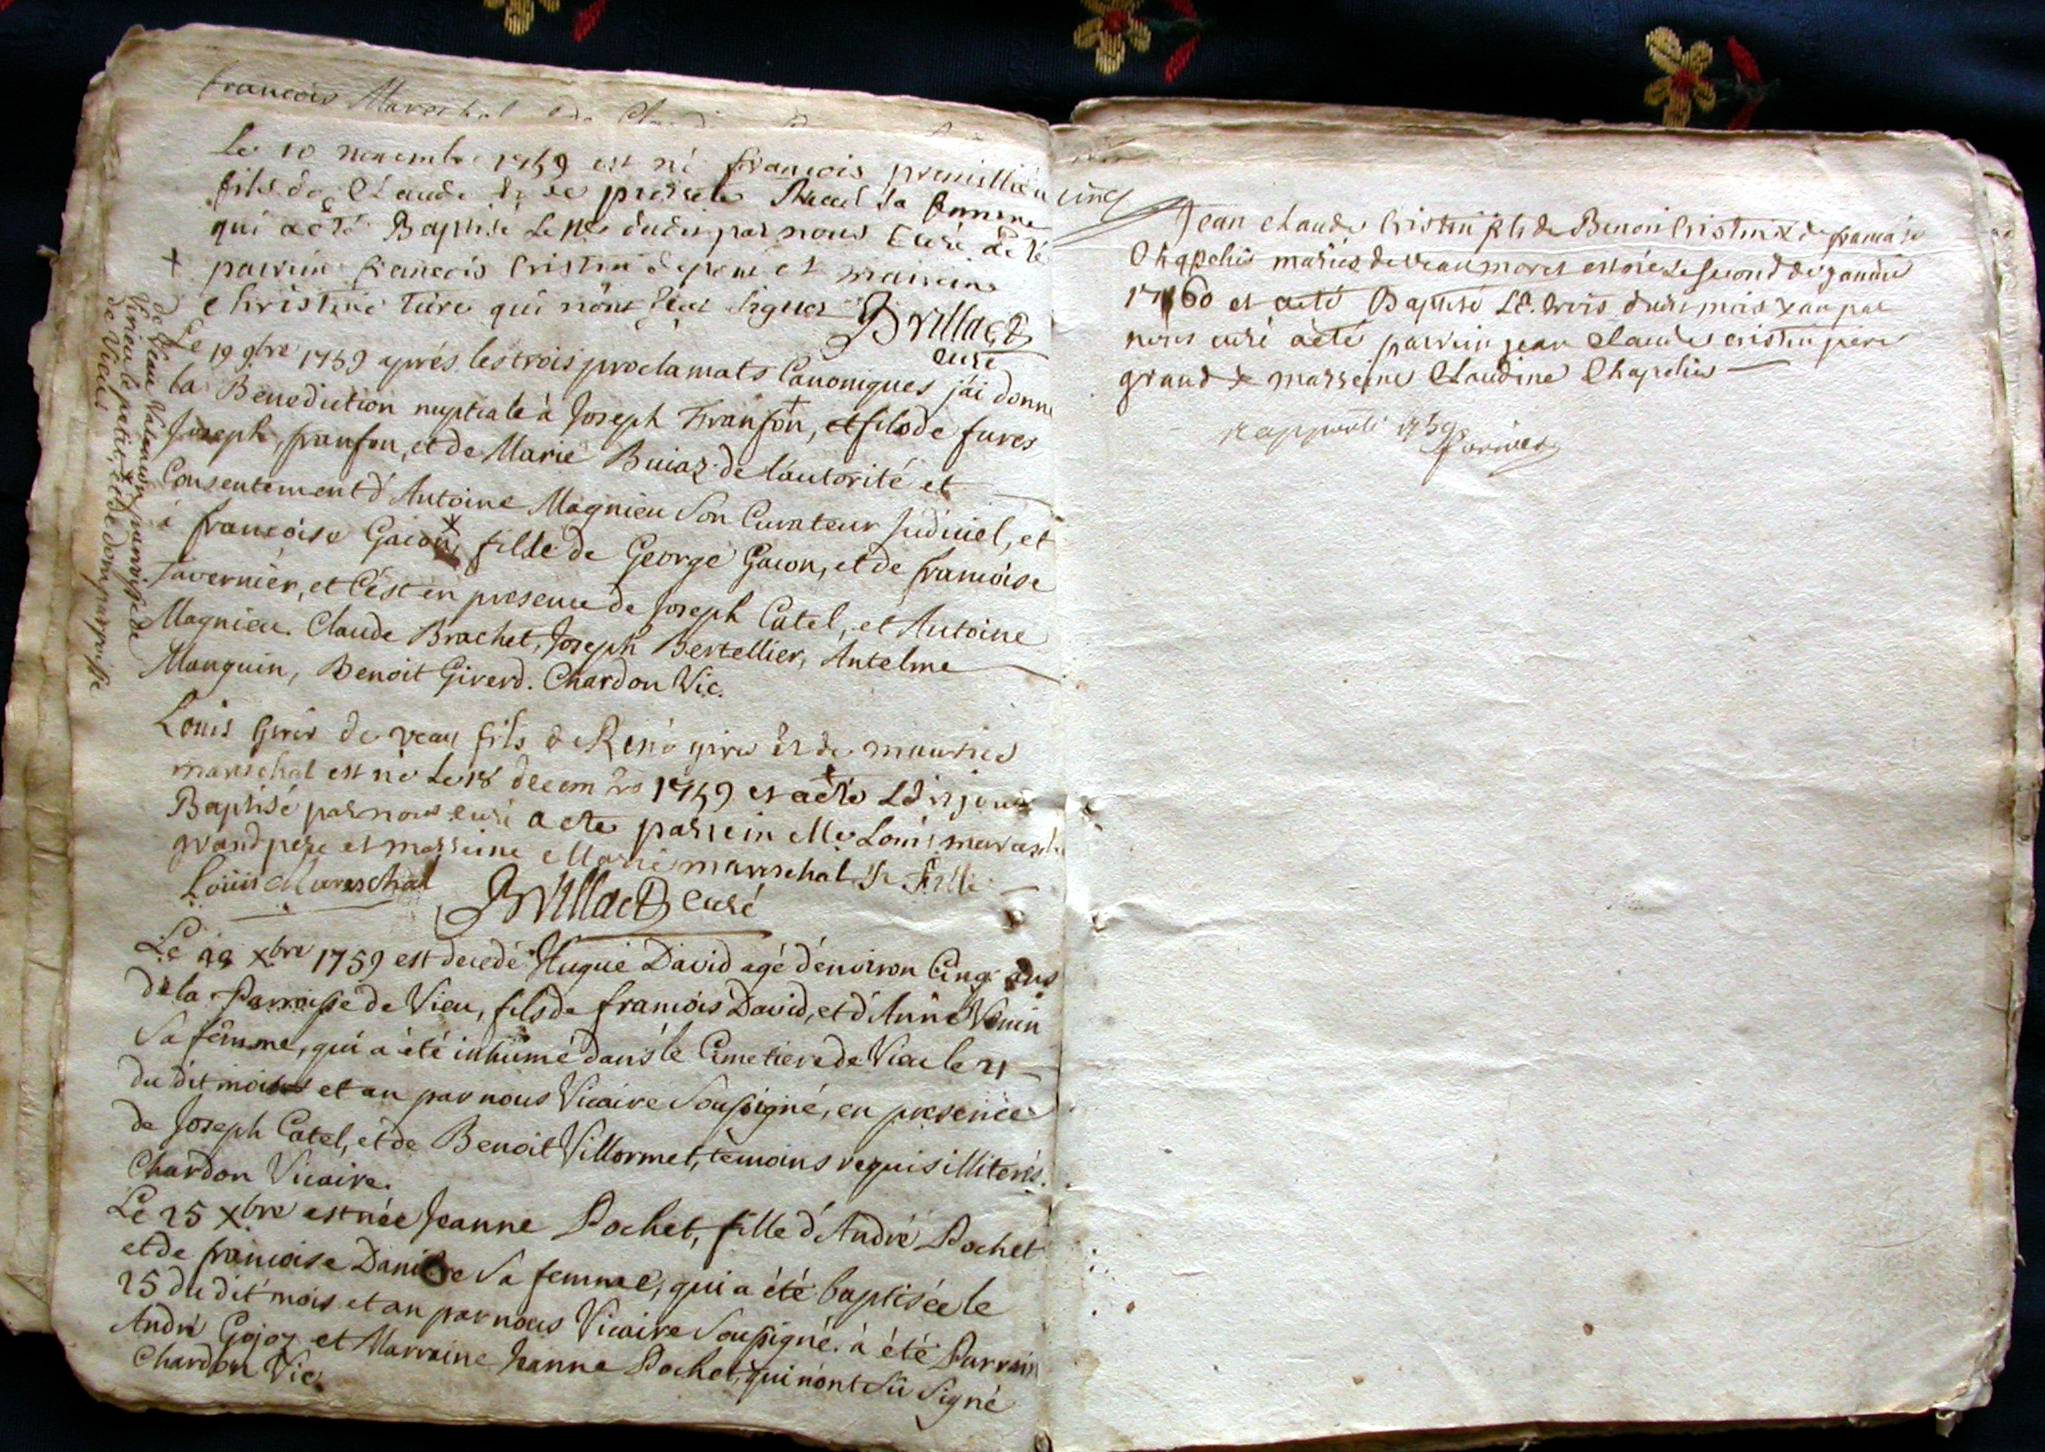 francois Mareschal
Le 10 novembre 1759 est né francois premillieu
fils de Claude et de sa femme
qui a eté Baptisé le par nous Curé a eté
parrin francois Cristin et marraine
Christine qui n'ont sçeu signer Brillat
curé
Le 19 9bre 1759 aprés les trois proclamats Canoniques j'ai donné
la Benediction nuptiale à Joseph Franfon, et fils de fures
Joseph, franfon, et de Marie Buiaz de l'autorité et
Consentement d'Antoine Magnieu Son Curateur Judiciel, et
à francoise Gacon, fille de George Gacon, et de francoise
Tavernier, et C'est en presence de Joseph Catel, et Antoine
Magnieu. Claude Brachet, Joseph Bertellier, Antelme
Manguin, Benoit Girerd. Chardon Vic.
de Veau Valromey parroisse de
Virieu le petit, et de domparroisse
de Vieu
Louis de veau fils de René et de
mareschal est né le 18 1759 et a eté
Baptisé par nous curé a ete parrein Mr Louis
grand pere et marreine Marie mareschal sa fille
Louis Mareschal Brillat curé
Le 18 xbre 1759 est decedé Hugue David agé d'environ Cinq ans
de la Parroisse de Vieu, fils de francois David, et d'Anne
Sa femme, qui a été inhumé dans le Cimetiere de Vieu le 21
du dit mois et an par nous Vicaire Soussigné, en presence
de Joseph Catel, et de Benoit Villormet, temoins requis illiterés.
Chardon Vicaire.
Le 25 xbre est née Jeanne Pochet, fille d'André Pochet
et de francoise Daniere Sa femme, qui a été baptisée le
25 du dit mois et an par nous Vicaire Soussigné. à été Parrain
André Gojoz et Marraine Jeanne Pochet, qui n'ont Sû Signé
Chardon Vic.
Jean claude Cristin fils de Benoit Cristin & de francoise
Chapelin mariés de veau est né le second de janvier
1760 et a eté Baptisé Le trois dudit mois & an par
nous curé a eté parrin jean Claude cristin père
grand & marreine Claudine Chapelin
1759